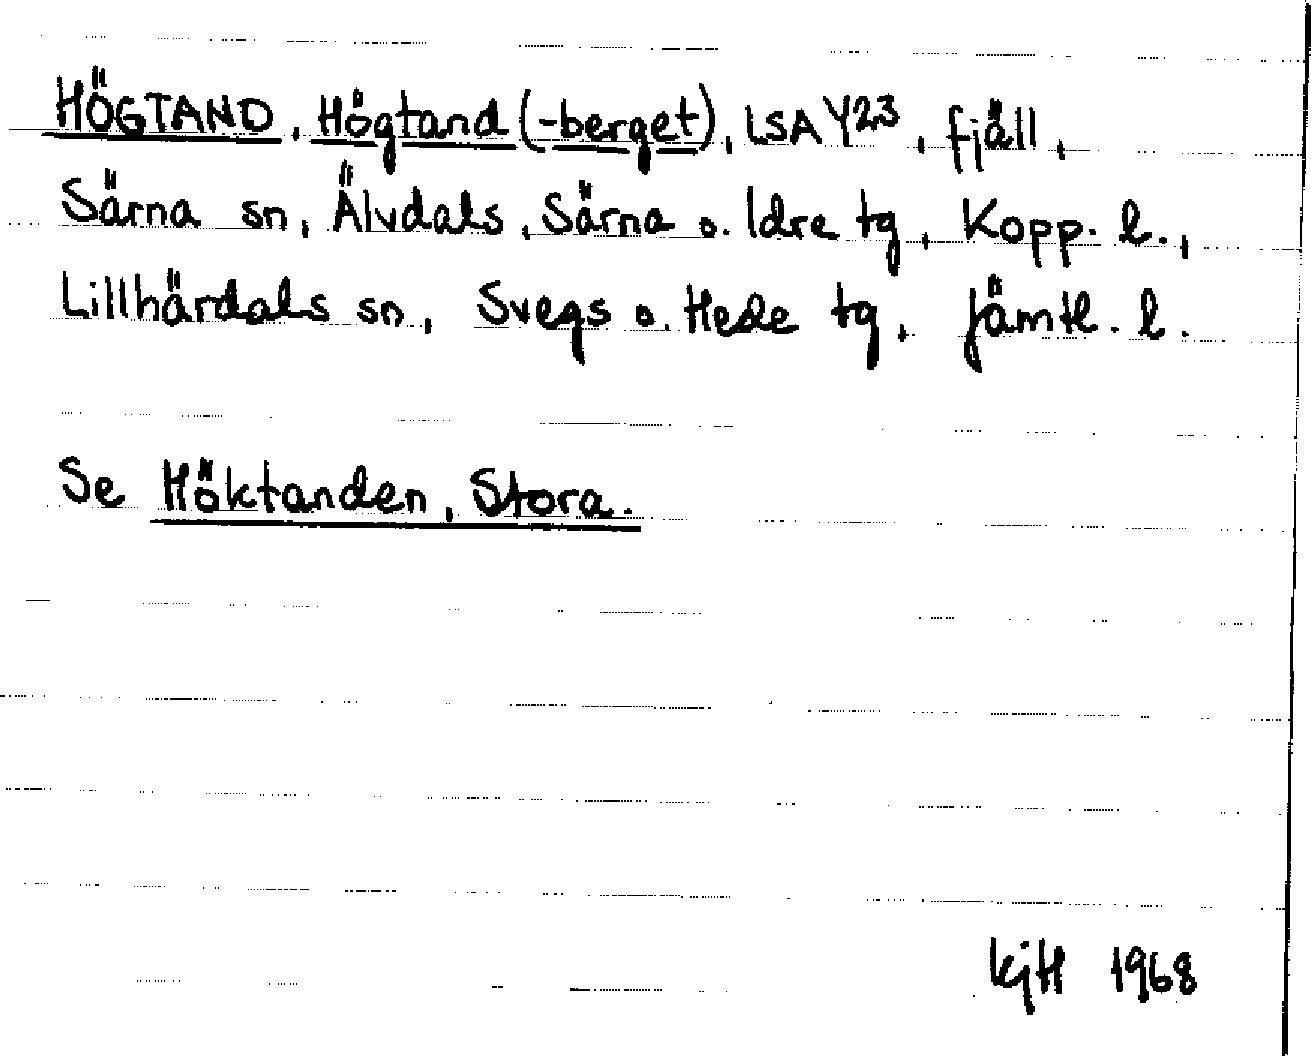 HÖGTAND, Högtand (-berget), LSA Y23, fjäll,
Särna sn, Älvdals, Särna o. Idre tg, Kopp. l.,
Lillhärdals sn, Svegs o. Hede tg, Jämtl. l.
Se Höktanden, Stora.
KjH 1968